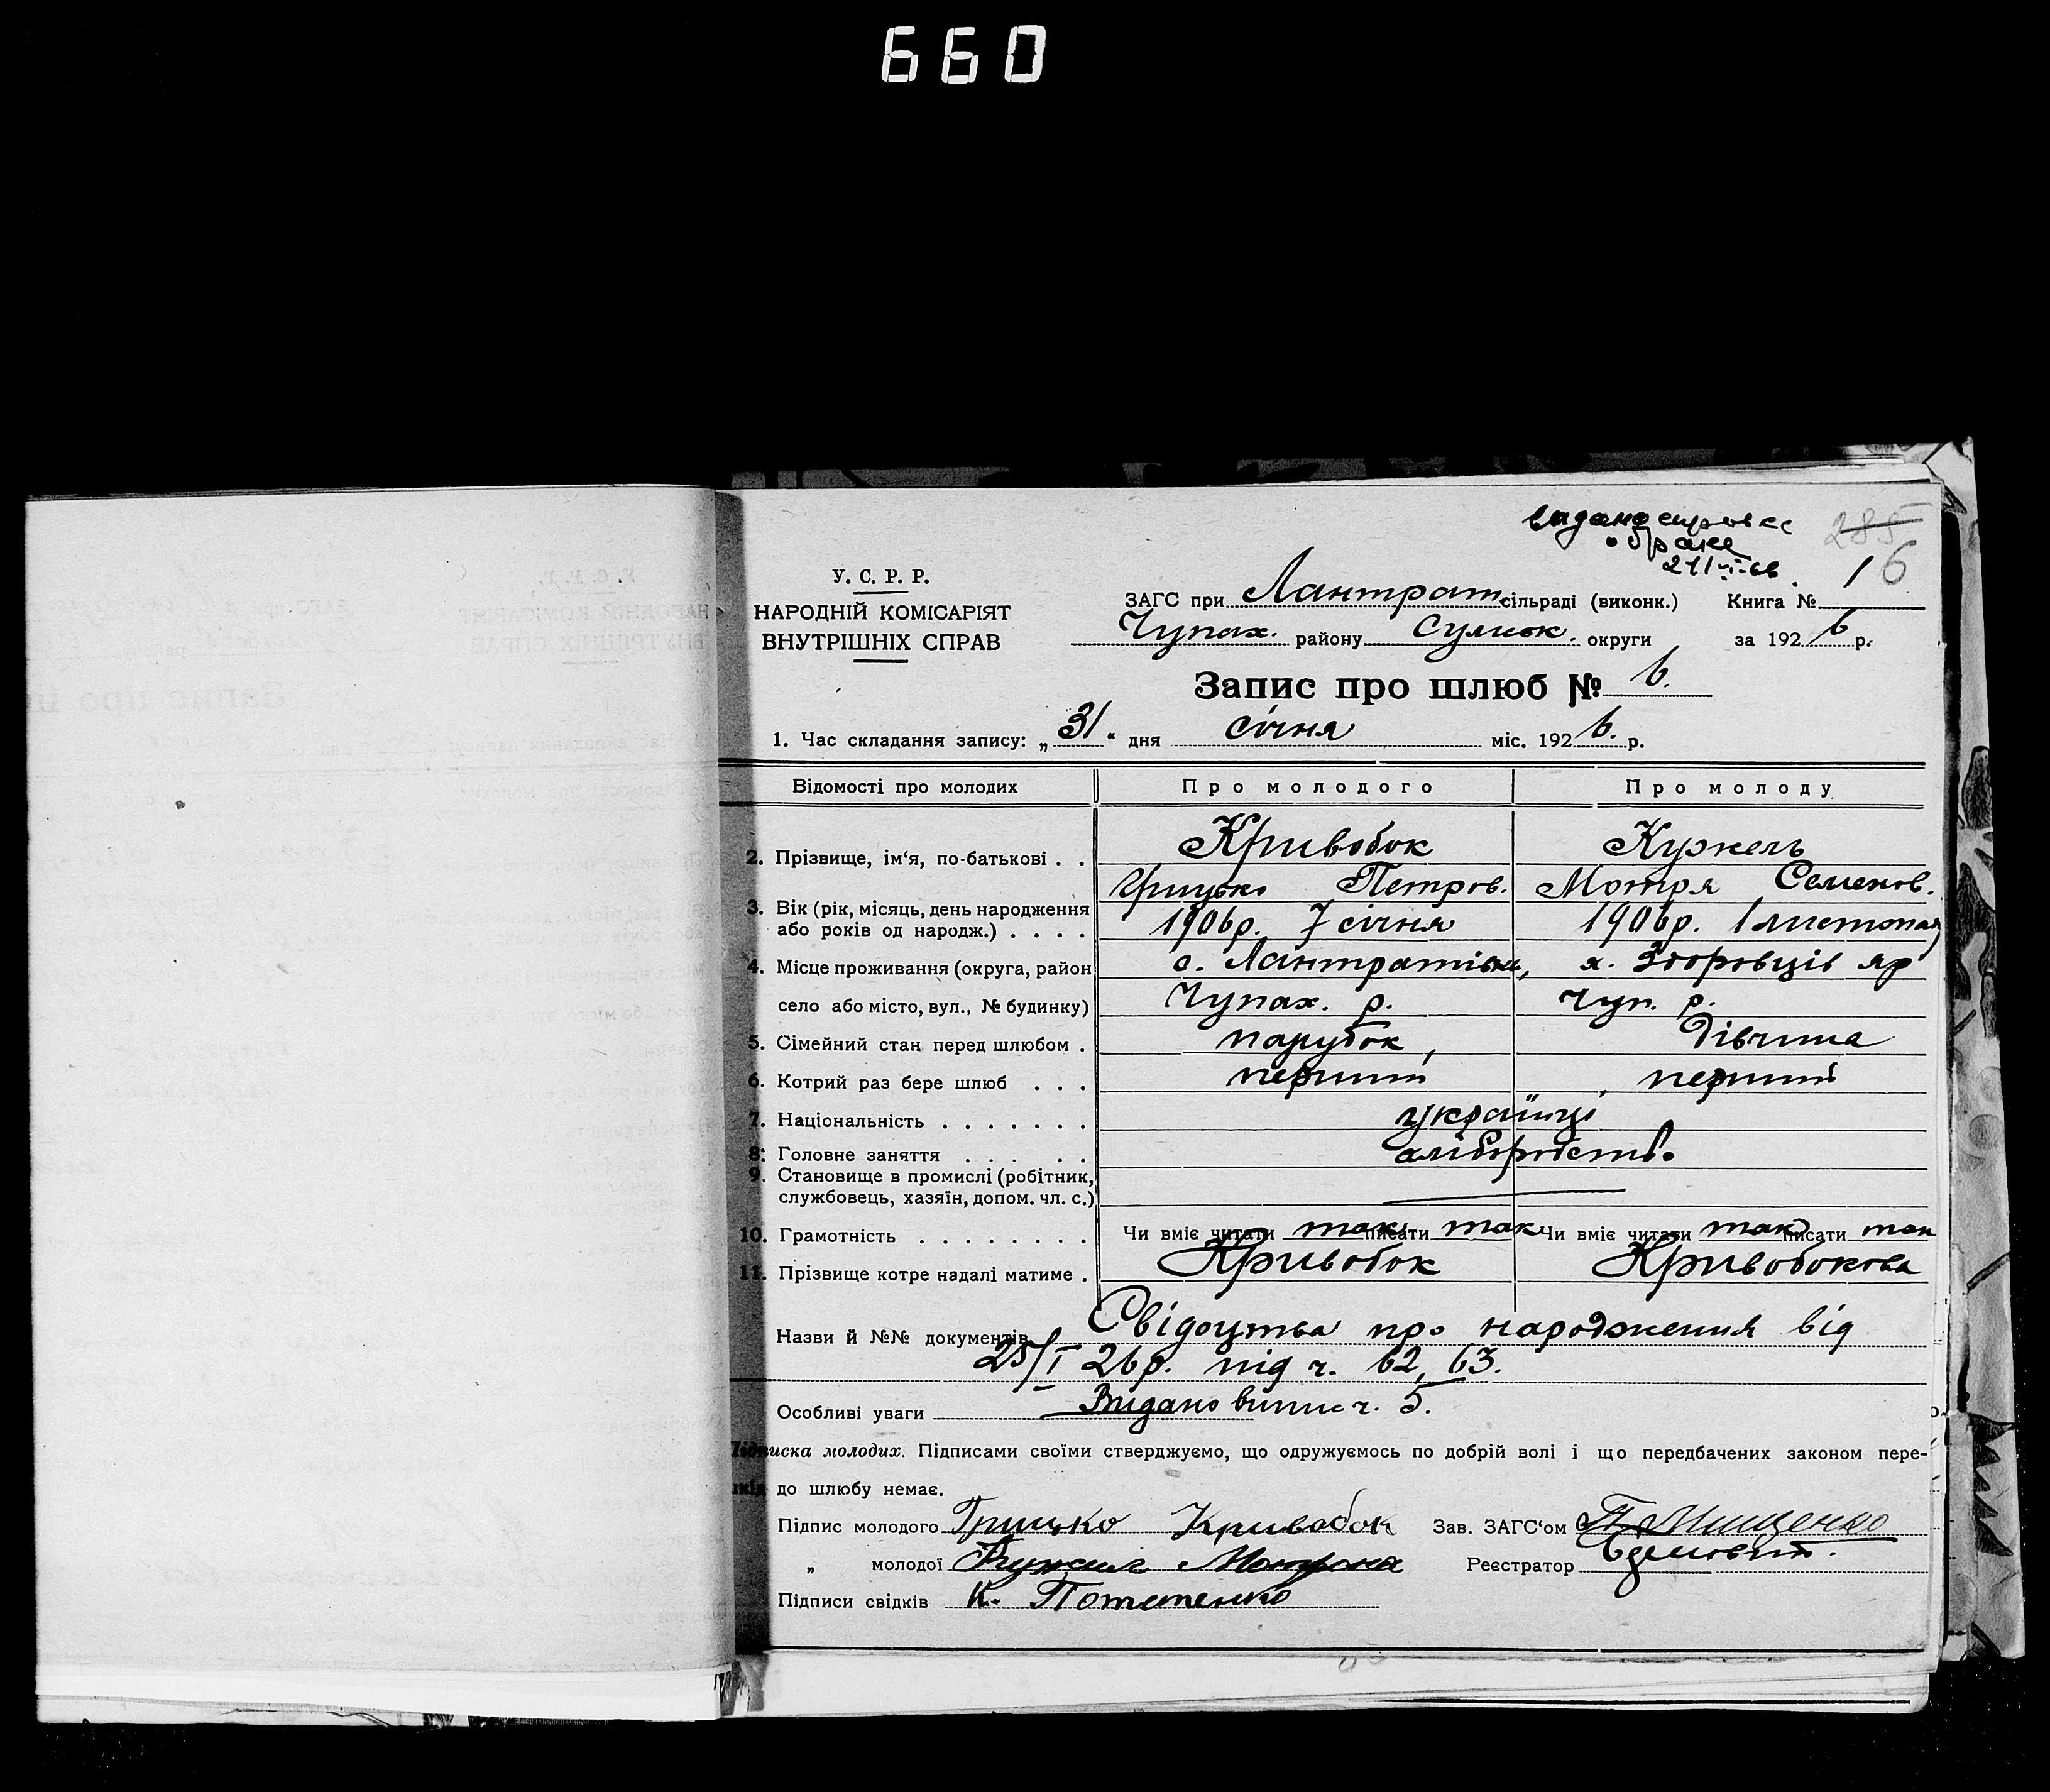 660
видана справка
о браке
285
16
У. С. Р. Р.
НАРОДНІЙ КОМІСАРІЯТ
ВНУТРІШНІХ СПРАВ
ЗАГС при Лантрат. сільраді (виконк.) Книга №
Чупах. району Сумськ. округи за 1926 р.
Запис про шлюб № 6.
1. Час складання запису: „31“ дня січня міс. 1926. р.
Відомості про молодих Про молодого Про молоду
2. Прізвище, ім‘я, по-батькові . . Кривобок Кужель
Грицько Петров. Мотря Семенов.
3. Вік (рік, місяць, день народження
або років од народж.) . . . . 1906р. 7 січня 1906р. 1 листопад
4. Місце проживання (округа, район с. Лантратівка, х. Здоровців яр
село або місто, вул., № будинку) Чупах. р. Чуп. р.
5. Сімейний стан перед шлюбом . парубок, дівчина
6. Котрий раз бере шлюб . . . перший, перший
7. Національність . . . . . . . українці
8. Головне заняття . . . . . хліборобство
9. Становище в промислі (робітник,
службовець, хазяїн, допом. чл. с.)
10. Грамотність . . . . . . . . Чи вміє читати так писати так Чи вміє читати так писати так
11. Прізвище котре надалі матиме . Кривобок Кривобокова
Назви й №№ документів Свідоцтва про народження від
25/I 26р. під ч. 62, 63.
Особливі уваги Видано випис ч. 5.
Підписка молодих. Підписами своїми стверджуємо, що одружуємось по добрій волі і що передбачених законом пере-
шкід до шлюбу немає.
Підпис молодого Грицько Кривобок Зав. ЗАГС‘ом П Мищенко
„ молодої Кужиль Мотрона Реєстратор
Підписи свідків К. Потапенко